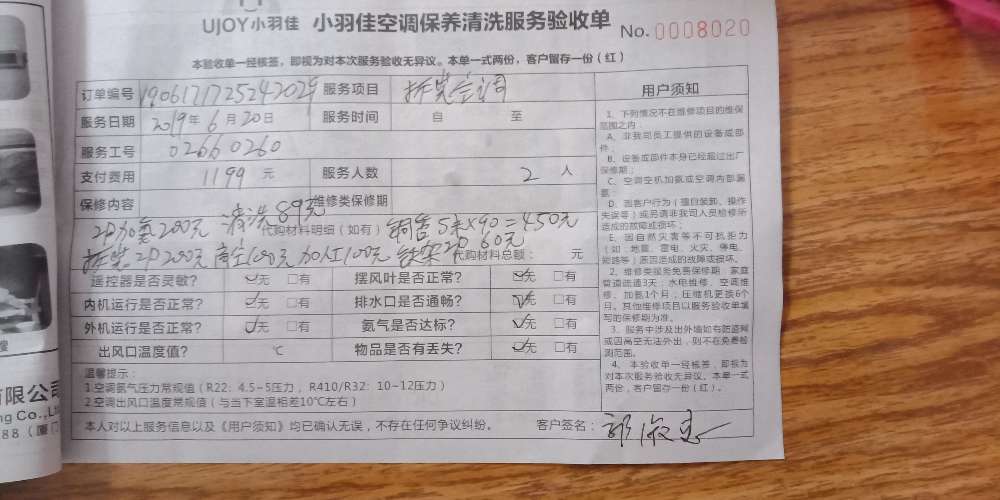 UJOY小羽佳 小羽佳空调保养清洗服务验收单 No.0008020
本验收单一经核签，即视为对本次服务验收无异议。本单一式两份，客户留存一份（红）
订单编号 服务项目 拆装空调
服务日期 2019年6月20日 服务时间 自 至
服务工号 02660260
支付费用 1199 元 服务人数 2 人
保修内容 维修类保修期
2P加氟200元 清洗89元 代购材料明细（如有） 铜管5米×90=450元
拆装2P200元 高空100元 加人工100元 铁架2P 60元 代购材料总额： 元
遥控器是否灵敏？ ☑无 □有 摆风叶是否正常？ ☑无 □有
内机运行是否正常？ ☑无 □有 排水口是否通畅？ ☑无 □有
外机运行是否正常？ ☑无 □有 氨气是否达标？ ☑无 □有
出风口温度值？ ℃ 物品是否有丢失？ ☑无 □有
温馨提示：
1.空调氨气压力常规值（R22：4.5-5压力，R410/R32：10-12压力）
2.空调出风口温度常规值（与当下室温相差10℃左右）
本人对以上服务信息以及《用户须知》均已确认无误，不存在任何争议纠纷。 客户签名：
用户须知
1、下列情况不在维修项目的维保
范围之内：
A、非我司员工提供的设备或部
件；
B、设备或部件本身已经超过出厂
保修期；
C、空调空机加氨或空调内部漏
氨；
D、因客户行为（擅自装卸、操作
失误等）或另请非我司人员检修所
造成的故障或损坏；
E、因自然灾害等不可抗拒力
（如：地震、雷电、火灾、停电、
短路等）原因造成的故障或损坏。
2、维修类服务免费保修期：家庭
管道疏通3天；水电维修、空调维
修、加氨1个月；压缩机更换6个
月。其他维修项目以服务验收单填
写的保修期为准。
3、服务中涉及出外墙如有防盗网
或因高空无法外出，则不在免费检
测范围。
4、本验收单一经核签，即视为
对本次服务验收无异议。本单一式
两份，客户留存一份（红）。
有限公司
ng Co.,Ltd
88（厦门